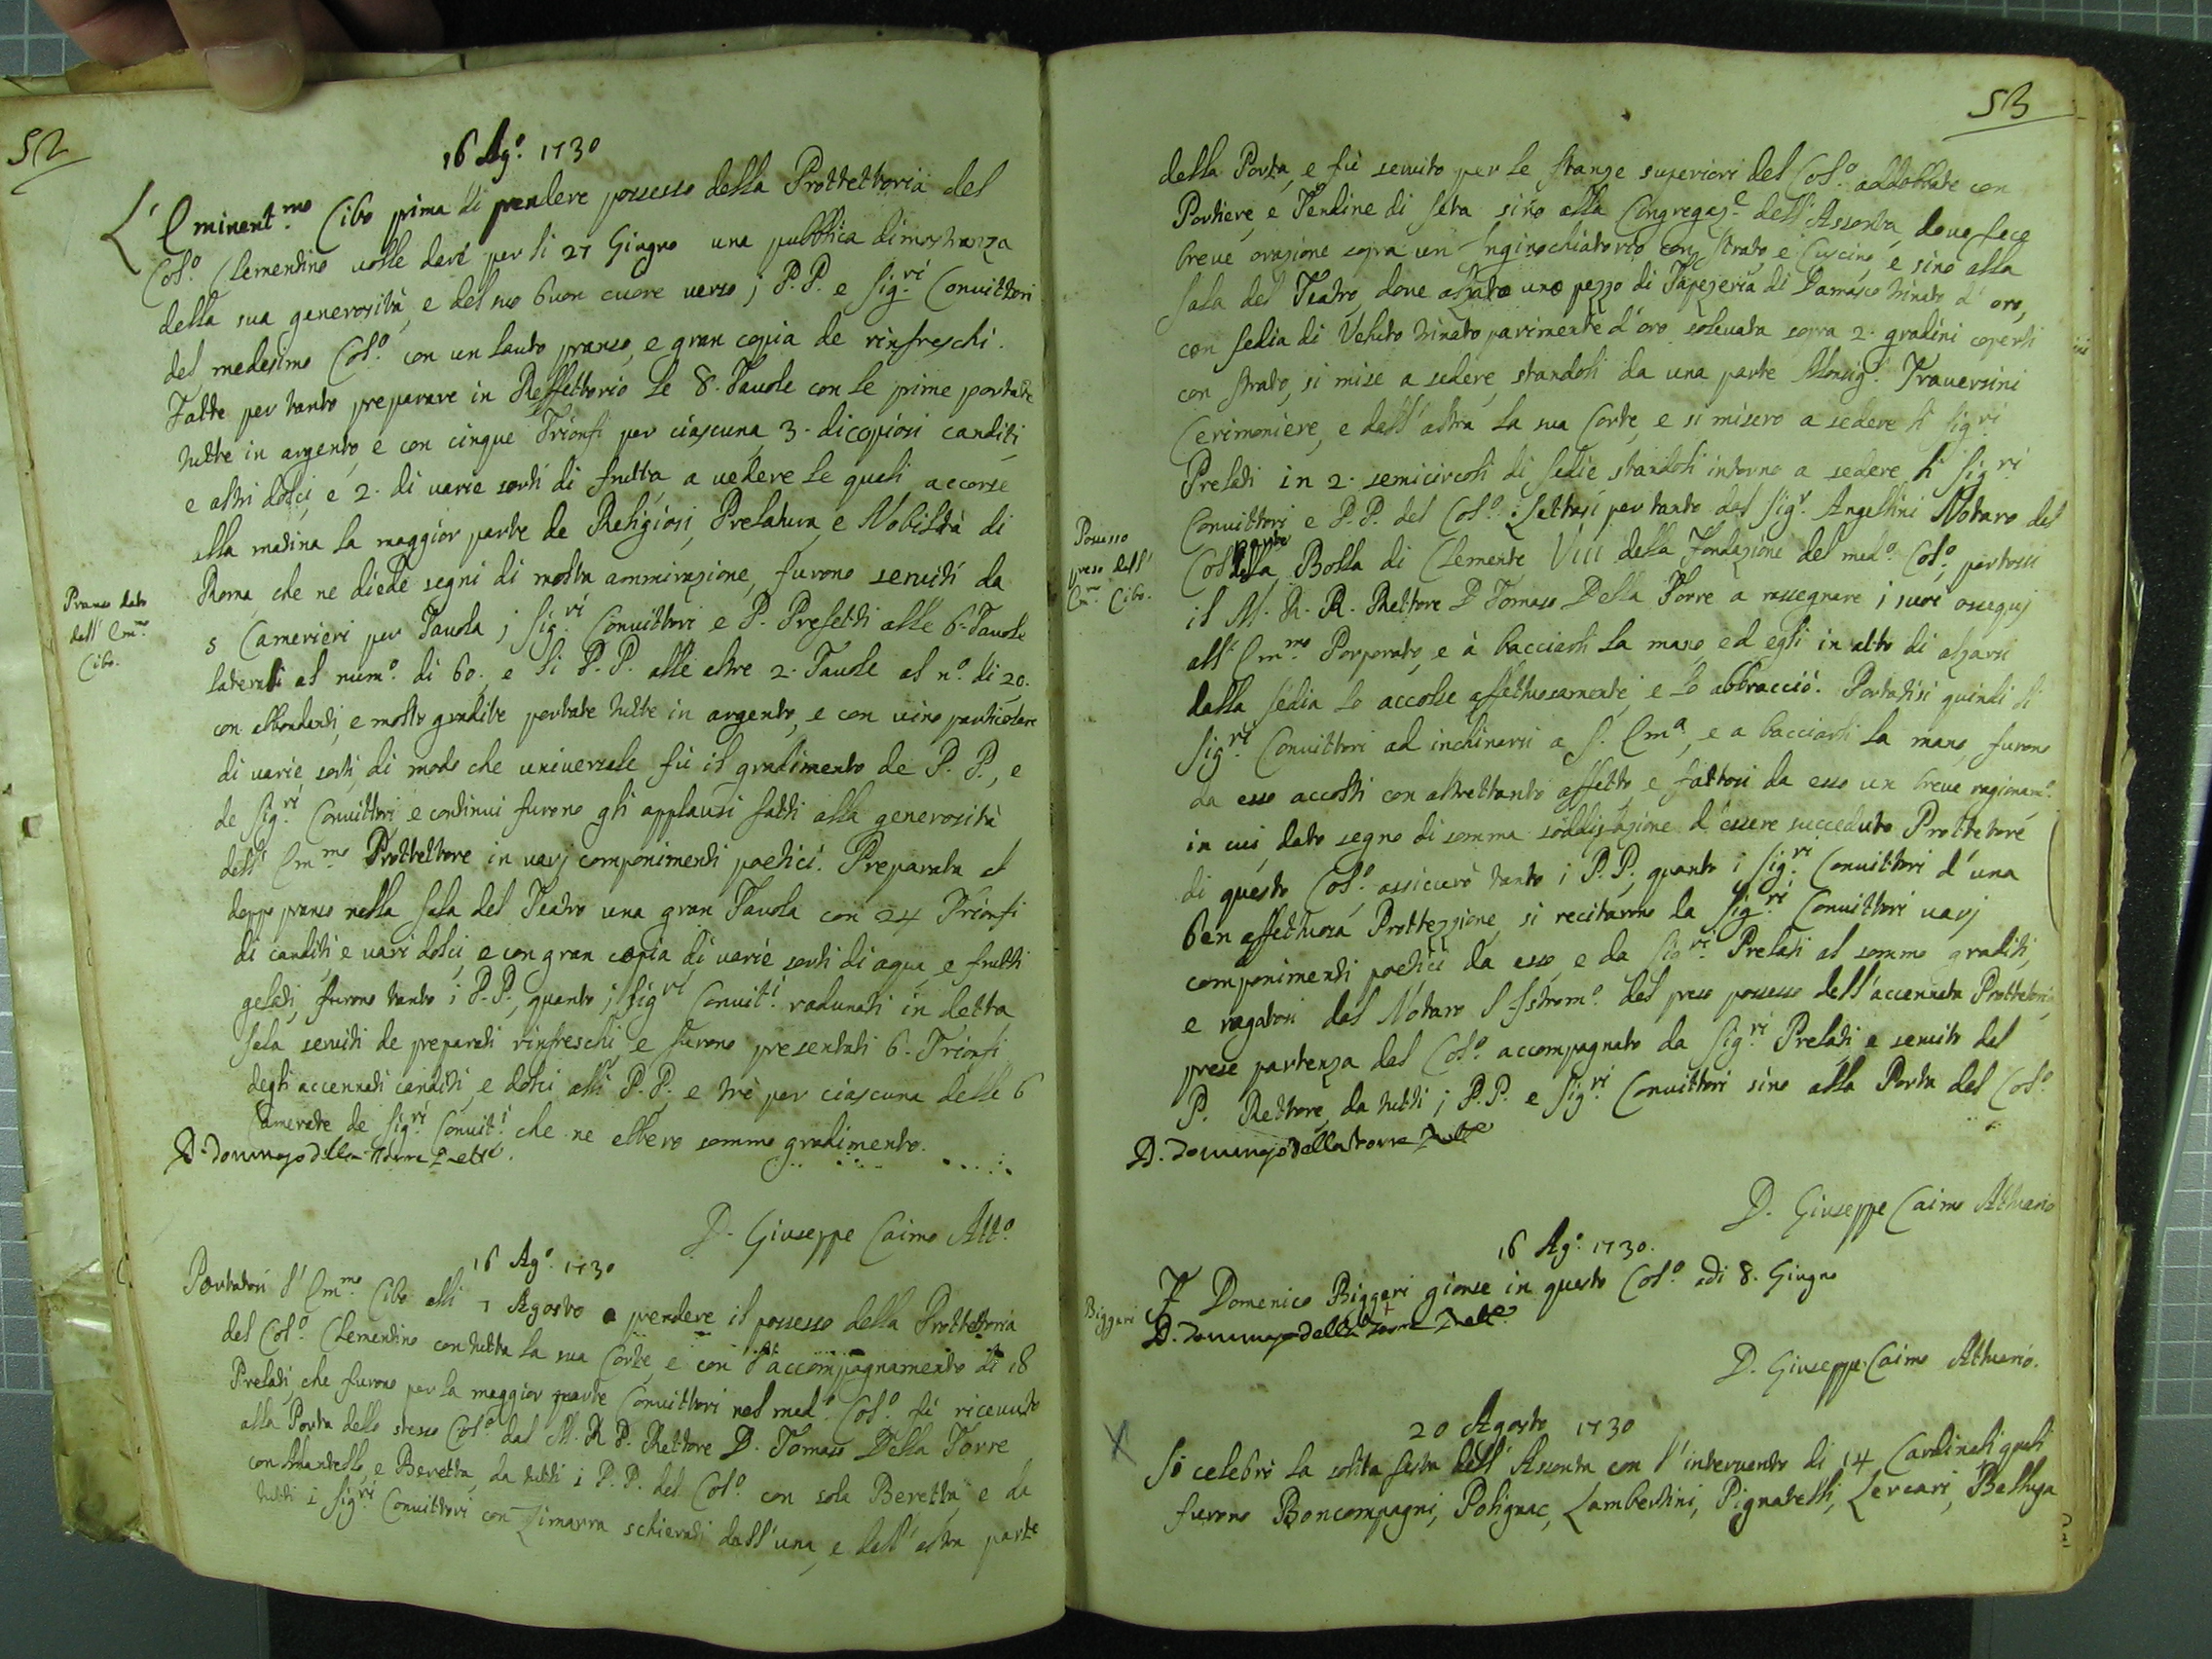 52
16 Ag.º 1730
L'Eminent.mo Cibo prima di prendere possesso della Prottettoria del
Col.º Clementino volle dare per li 27 Giugno una pubblica dimostranza
della sua generosità, e del suo buon cuore verso j P.P. e Sig.ri Convittori
del medesimo Col.º con un lauto pranso, e gran copia de rinfreschi.
Fatte per tanto preparare in Reffettorio le 8. Tavole con le prime portate
tutte in argento, e con cinque Trionfi per ciascuna, 3. di copiosi canditi,
e altri dolci, e 2. di varie sorti di frutta a vedere le quali accorse
ella matina la maggior parte de Religiosi, Prelatura, e Nobiltà di
Roma, che ne diede segni di molta ammirazione, furono serviti da
Pranso dato
dall' Em.mo
Cibo.
5 Camerieri per Tavola j Sig.ri Convittori e P. Prefetti alle 6. Tavole
laterali al num.º di 60. e li P.P. alle altre 2. Tavole al n.º di 20.
con abbondanti, e molto gradite portate tutte in argento, e con vino particolare
di varie sorti, di modo che universale fù il gradimento de P. P., e
de Sig.ri Convittori e continui furono gli applausi fatti alla generosità
dell' Em.mo Prottettore in varj componimenti poetici. Preparata al
doppo pranso nella Sala del Teatro una gran Tavola con 24 Trionfi
di canditi e vari dolci, e con gran copia di varie sorti di aqua, e frutti
gelati, furono tanto i P.P., quanto j Sig.ri Convit.i radunati in detta
Sala serviti de preparati rinfreschi, e furono presentati 6. Trionfi
degli accennati canditi, e dolci alli P.P. e trè per ciascuna delle 6
Camerate de Sig.ri Convit.i che ne ebbero sommo gradimento.
D. Tommaso della Torre Rett.e
D. Giuseppe Caimo Att.º
16 Ag.º 1730
Portatosi l'Em.mo Cibo alli 7 Agosto a prendere il possesso della Prottettoria
del Col.º Clementino con tutta la sua Corte, e con l'accompagnamento di 18
Prelati, che furono per la maggior parte Convittori nel med.º Col.º fù ricevuto
alla Porta dello stesso Col.º dal M. R. P. Rettore D. Tomaso Della Torre
con Mantello, e Beretta, da tutti i P.P. del Col.º con sola Beretta, e da
tutti i Sig.ri Convittori con Zimarra schierati dall'una, e dall'altra parte
53
della Porta, e fù servito per le stanze superiori del Col.º addobbate con
Portiere, e Tendine di seta sino alla Congregaz.e dell'Assonta, dove fece
breve orazione sopra un Inginochiatorio con strato, e Cuscino, e sino alla
Sala del Teatro, dove alzato uno pezzo di Tapezeria di Damasco trinato d'oro,
con sedia di Veluto trinato parimente d'oro solevata sopra 2. gradini coperti
con strato, si mise a sedere, standoli da una parte Monsig.r Traversini
Cerimoniere, e dall'altra la sua Corte, e si misero a sedere li Sig.ri
Prelati in 2. semicircoli di sedie standoli intorno a sedere li Sig.ri
Convittori e P.P. del Col.º. Lettasi per tanto dal Sig.r Angellini Notaro del
Possesso
preso dall'
Em.mo Cibo.
Col.º parte della Bolla di Clemente VIII della Fondazione del med.º Col.º, portossi
il M. R. P. Rettore D Tomaso Della Torre a rassegnare i suoi ossequj
all' Em.mo Porporato, e à bacciarli la mano, ed egli in atto di alzarsi
dalla sedia lo accolse affettuosamente, e lo abbracciò. Portatisi quindi li
Sig.ri Convittori ad inchinarsi a S. Em.a, e a bacciarli la mano, furono
da esso accolti con altrettanto affetto e fattosi da esso un breve ragionam.º
in cui dato segno di somma soddisfazione d'essere succeduto Prottetore
di questo Col.º, assicurò tanto i P.P., quanto i Sig.ri Convittori d'una
ben affettuosa Prottezzione, si recitarono da Sig.ri Convittori varj
componimenti poetici da esso, e da Sig.ri Prelati al sommo graditi,
e rogatosi dal Notaro l'Istrom.º del preso possesso dell'accennata Prottetoria,
prese partenza dal Col.º accompagnato da Sig.ri Prelati, e servito dal
P. Rettore, da tutti j P.P. e Sig.ri Convittori sino alla Porta del Col.º
D. Tommaso della Torre Rett.e
D. Giuseppe Caimo Attuario
16 Ag.º 1730.
Biggeri
F. Domenico Biggeri gionse in questo Col.º adi 8. Giugno
D. Tommaso della Torre Rett.e
D. Giuseppe Caimo Attuario.
20 Agosto 1730
X
Si celebrò la solita festa dell'Assonta con l'intervento di 14 Cardinali quali
furono Boncompagni, Polignac, Lambertini, Pignatelli, Lercari, Belluga